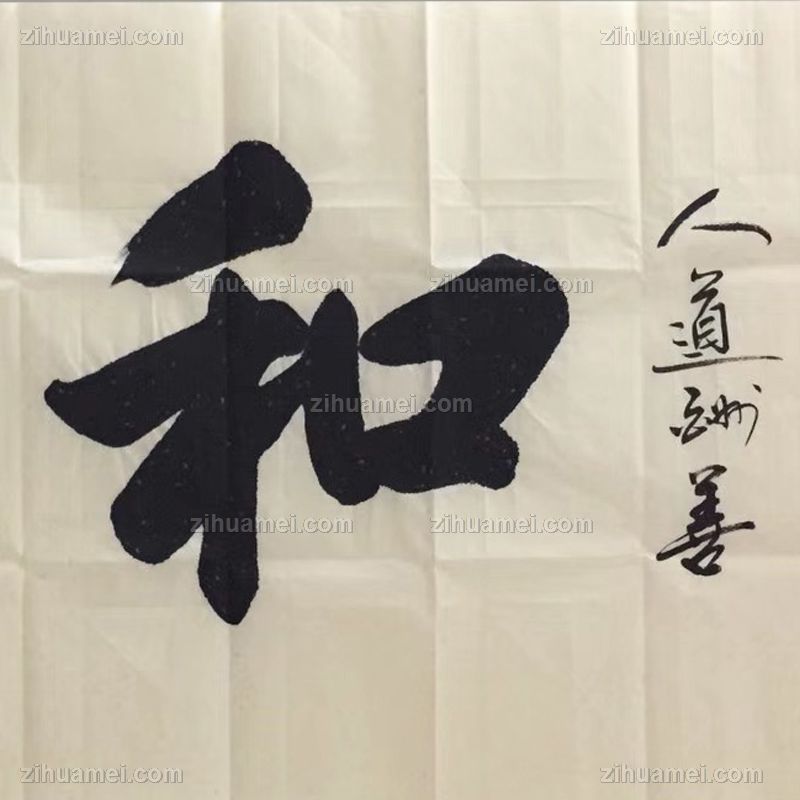 人道酬善
和
zihuamei.com
zihuamei.com
zihuamei.com
zihuamei.com
zihuamei.com
zihuamei.com
zihuamei.com
zihuamei.com
zihuamei.com
zihuamei.com
zihuamei.com